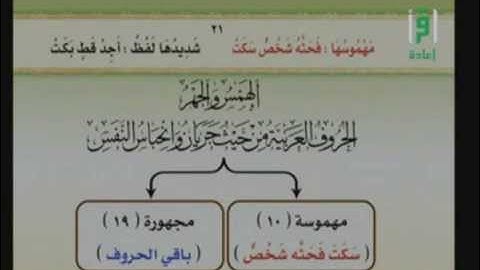 ٢١
مَهْمُوسُهَا : فَحَثَّهُ شَخْصٌ سَكَتَ شَدِيدُهَا لَفْظُ : أَجِدْ قَطٍ بَكَتْ
إعادة
الهَمْسُ وَالجَهْرُ
الحُرُوفُ العَرَبِيَّةُ مِنْ حَيْثُ جَرَيَانُ وَانْحِبَاسُ النَّفَسِ
مهموسة ( ١٠ )
( سَكَتَ فَحَثَّه شَخْصٌ )
مجهورة ( ١٩ )
( باقي الحروف )